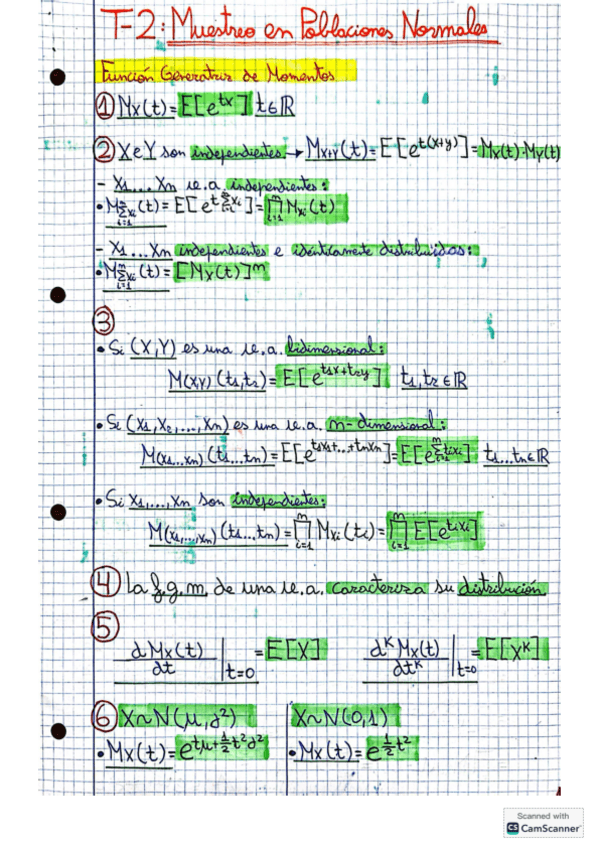 T-2: Muestreo en Poblaciones Normales
Función Generatriz de Momentos
① Mx(t) = E[e^{tx}] t∈ℝ
② X e Y son independientes → M_{X+Y}(t) = E[e^{t(x+y)}] = Mx(t)·My(t)
- X1...Xn v.a. independientes:
• M_{\sum_{i=1}^{n} Xi}(t) = E[e^{t \sum_{i=1}^{n} Xi}] = \prod_{i=1}^{n} M_{Xi}(t)
- X1...Xn independientes e idénticamente distribuidos:
• M_{\sum_{i=1}^{n} Xi}(t) = [Mx(t)]^n
③
• Si (X,Y) es una v.a. bidimensional:
M(x,y) (t1,t2) = E[e^{t1x+t2y}] t1,t2 ∈ℝ
• Si (X1,X2,...,Xn) es una v.a. n-dimensional:
M(x1...xn) (t1...tn) = E[e^{t1x1+...+tnxn}] = E[e^{\sum_{i=1}^{n} tixi}] t1...tn∈ℝ
• Si X1,...,Xn son independientes:
M(x1,...,xn) (t1...,tn) = \prod_{i=1}^{n} M_{Xi}(ti) = \prod_{i=1}^{n} E[e^{tixi}]
④ La f.g.m. de una v.a. caracteriza su distribución
⑤
dMx(t)/dt |t=0 = E[X] d^K Mx(t)/dt^K |t=0 = E[X^K]
⑥ X~N(μ,σ²) X~N(0,1)
• Mx(t) = e^{tμ+½t²σ²} • Mx(t) = e^{½t²}
Scanned with
CS CamScanner